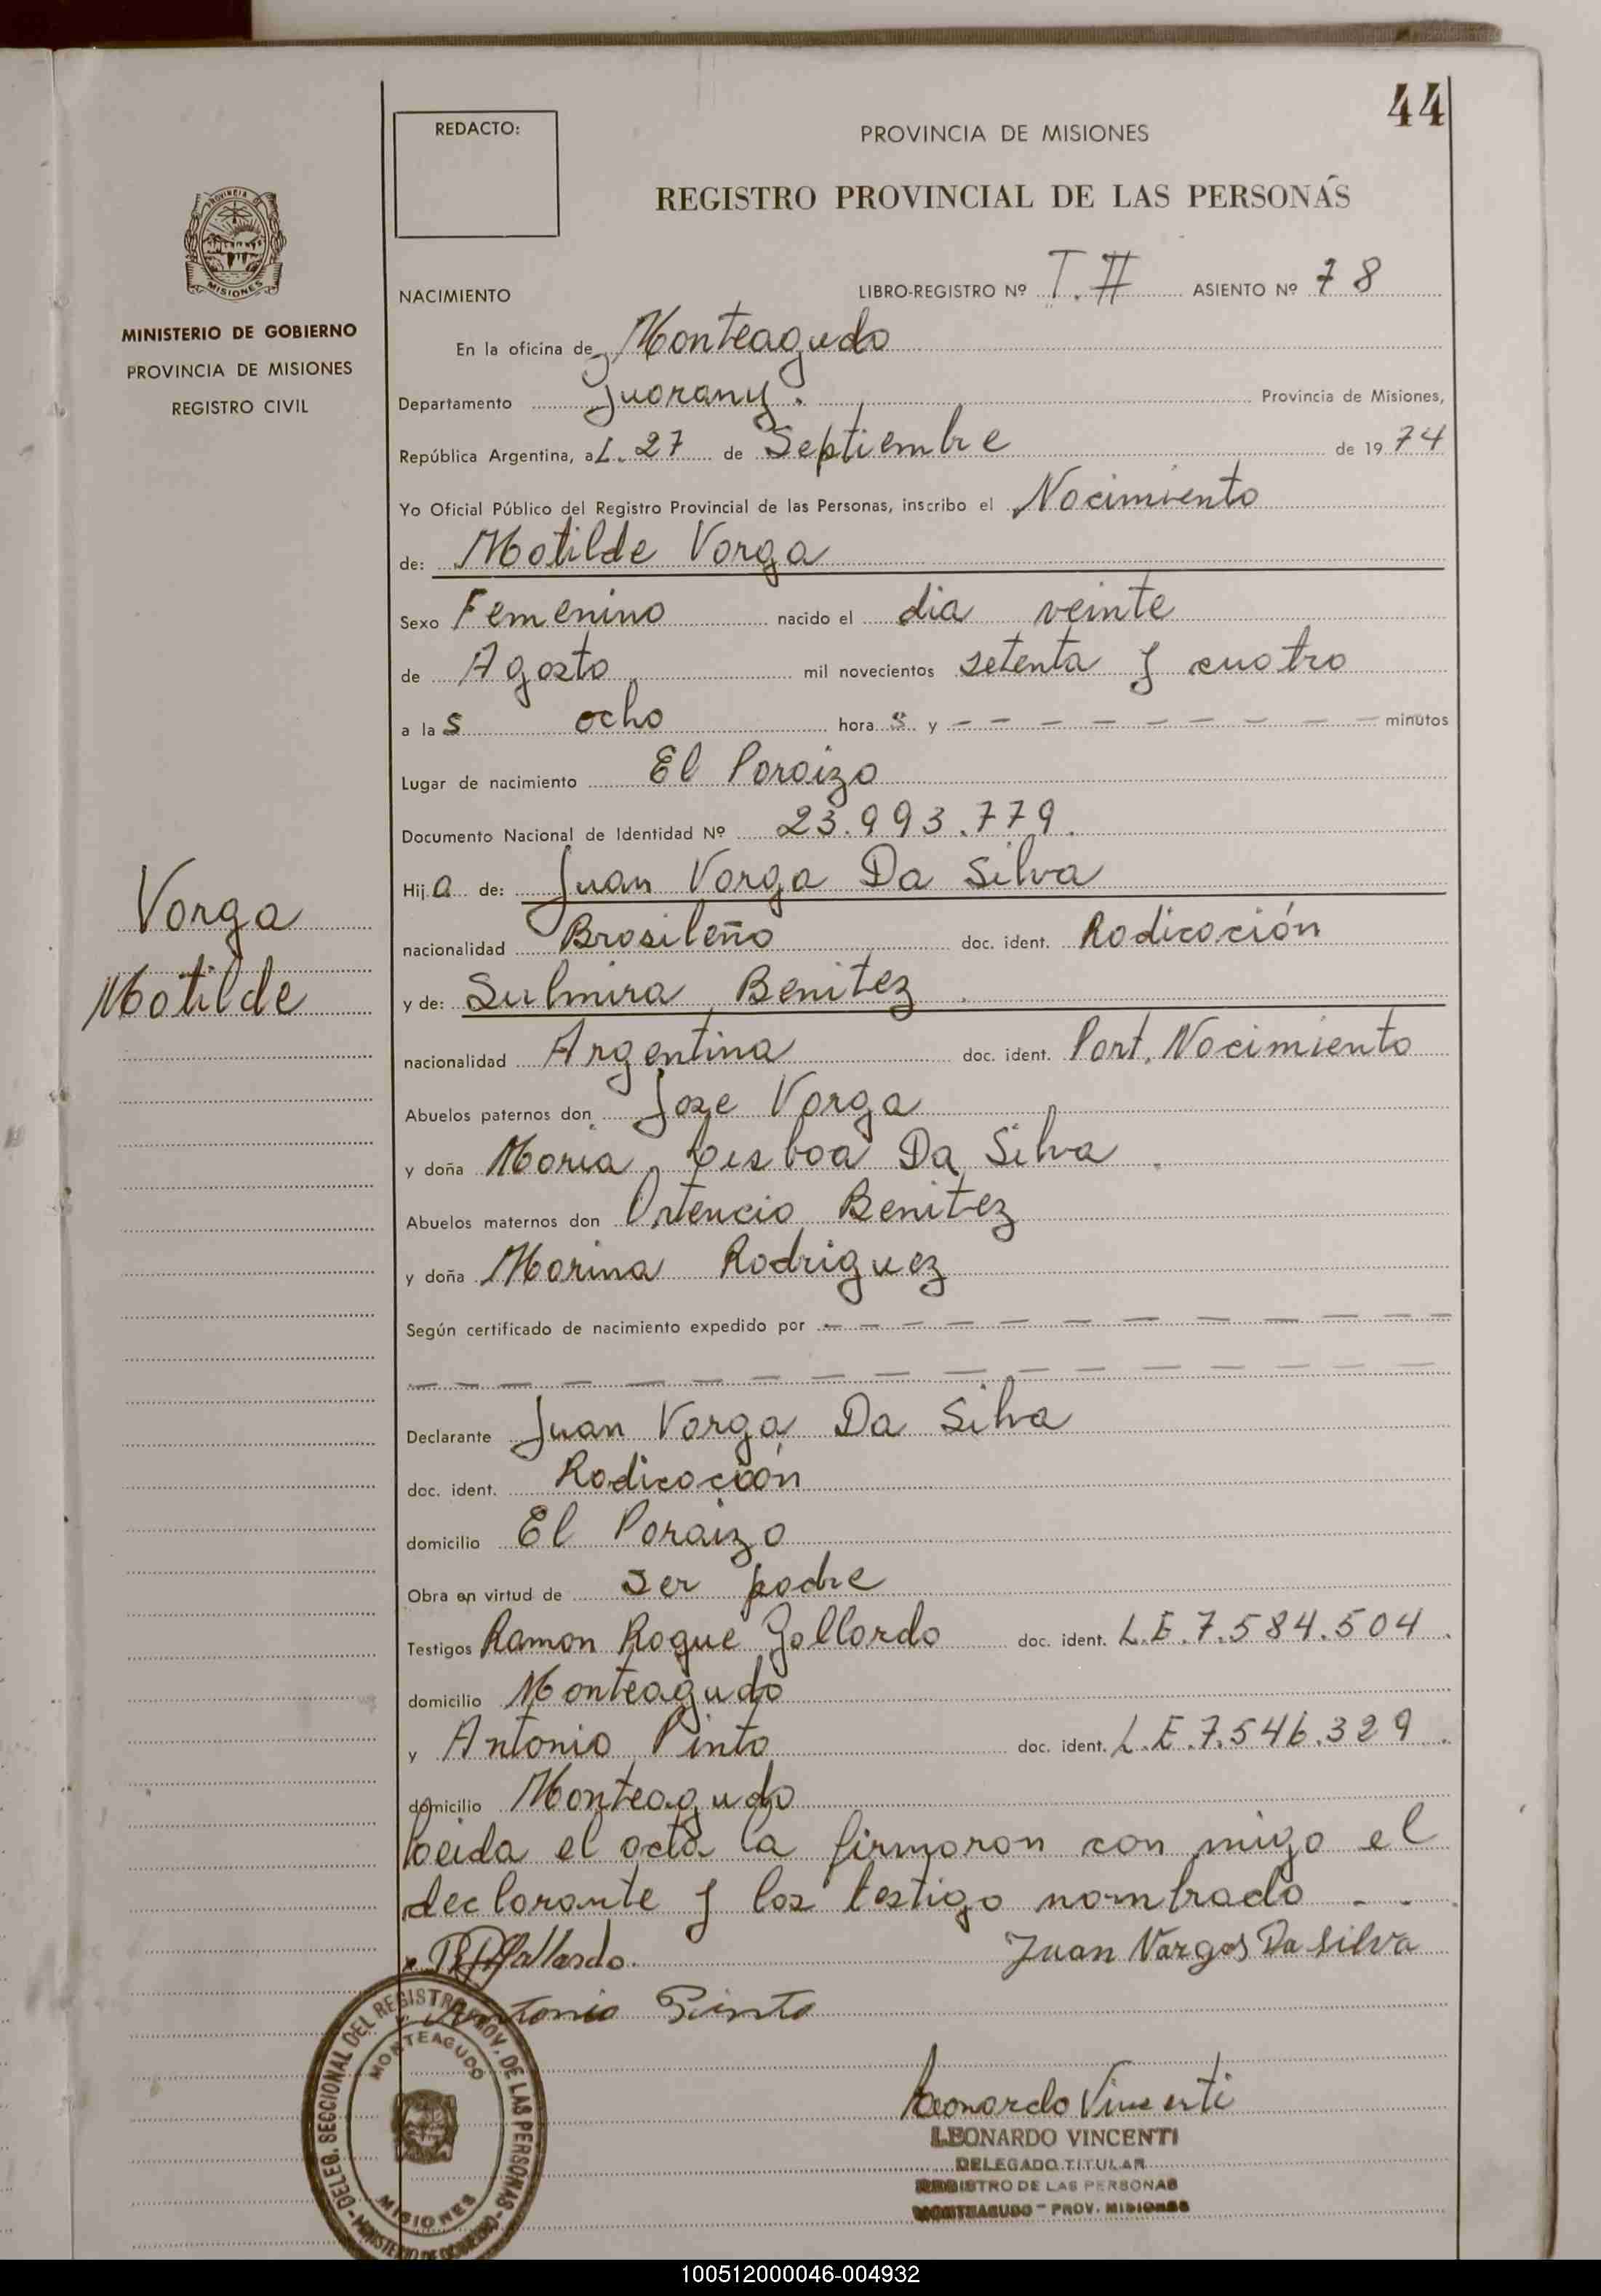 44
REDACTO:
PROVINCIA DE MISIONES
REGISTRO PROVINCIAL DE LAS PERSONAS
PROVINCIA DE
MISIONES
NACIMIENTO LIBRO-REGISTRO Nº T. II ASIENTO Nº 78
MINISTERIO DE GOBIERNO
PROVINCIA DE MISIONES
REGISTRO CIVIL
En la oficina de Monteagudo
Departamento Guarany. Provincia de Misiones,
República Argentina, a L. 27 de Septiembre de 1974
Yo Oficial Público del Registro Provincial de las Personas, inscribo el Nacimiento
de: Matilde Varga
Sexo Femenino nacido el dia veinte
de Agosto mil novecientos setenta y cuatro
a las ocho horas y — — — — — — — — — minutos
Lugar de nacimiento El Paraizo
Documento Nacional de Identidad Nº 23.993.779.
Hija de: Juan Varga Da Silva
Varga
Matilde
nacionalidad Brasileño doc. ident. Radicación
y de: Sulmira Benitez
nacionalidad Argentina doc. ident. Part. Nacimiento
Abuelos paternos don Jose Varga
y doña Maria Lisboa Da Silva
Abuelos maternos don Ortencio Benitez
y doña Marina Rodriguez
Según certificado de nacimiento expedido por — — — — — — — — — —
— — — — — — — — — — — — — — — —
Declarante Juan Varga Da Silva
doc. ident. Radicación
domicilio El Paraizo
Obra en virtud de ser padre
Testigos Ramon Roque Gallardo doc. ident. L.E.7.584.504.
domicilio Monteagudo
y Antonio Pinto doc. ident. L.E.7.546.329.
domicilio Monteagudo
Leida el acta la firmaron con migo el
declarante y los testigo nombrado - - .
Gallardo. Juan Vargas Da silva
Antonio Pinto
Leonardo Vincenti
LEONARDO VINCENTI
DELEGADO TITULAR
REGISTRO DE LAS PERSONAS
MONTEAGUDO - PROV. MISIONES
DELEG. SECCIONAL DEL REGISTRO PROV. DE LAS PERSONAS
MONTEAGUDO
MISIONES
- MINISTERIO DE GOBIERNO -
100512000046-004932